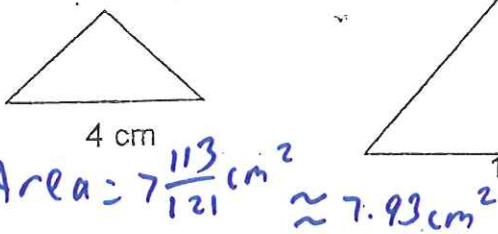 4 cm
Area = 7 113/121 cm² ≈ 7.93 cm²